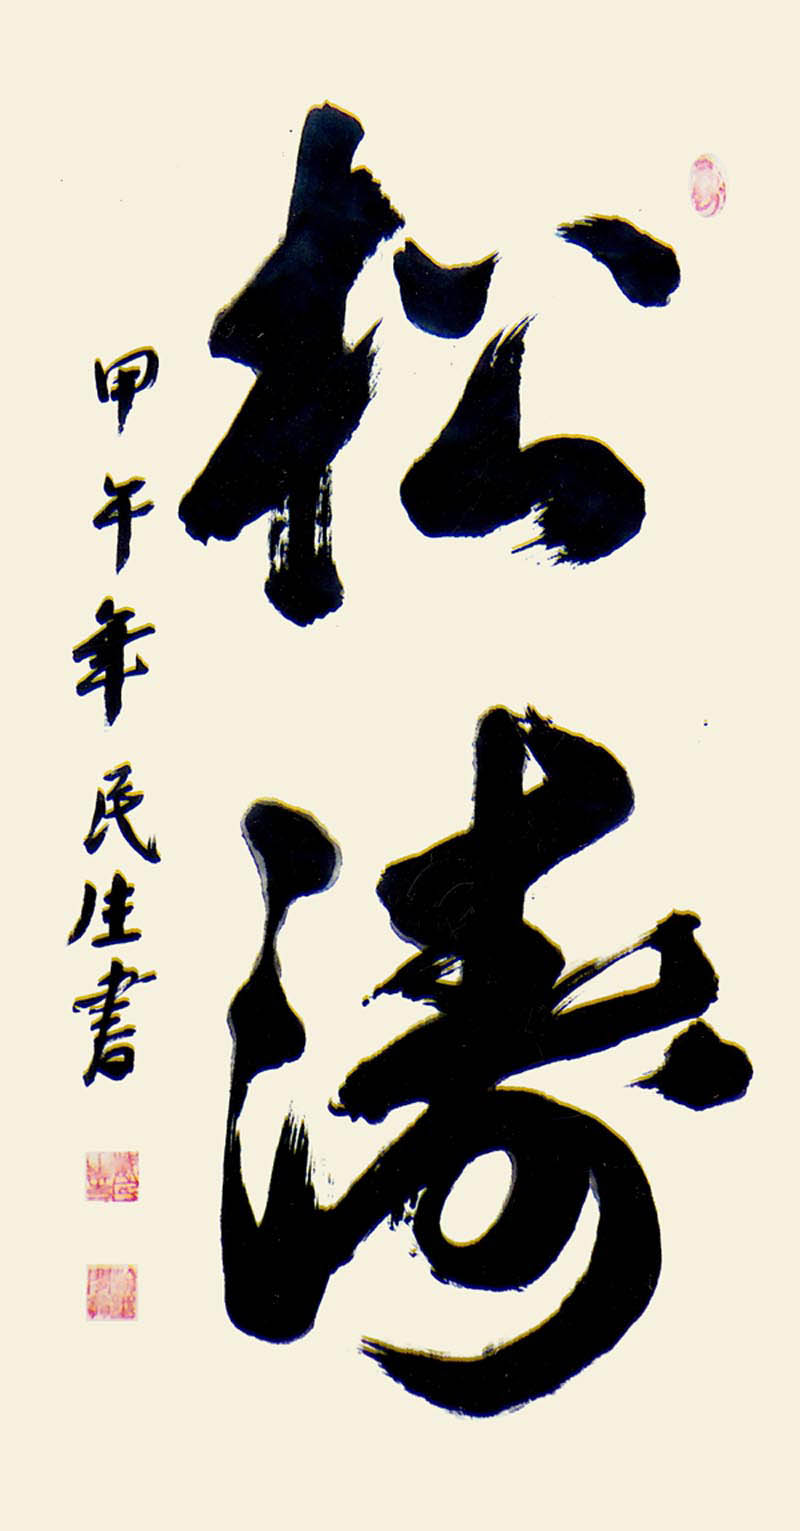 松涛
甲午年民生書